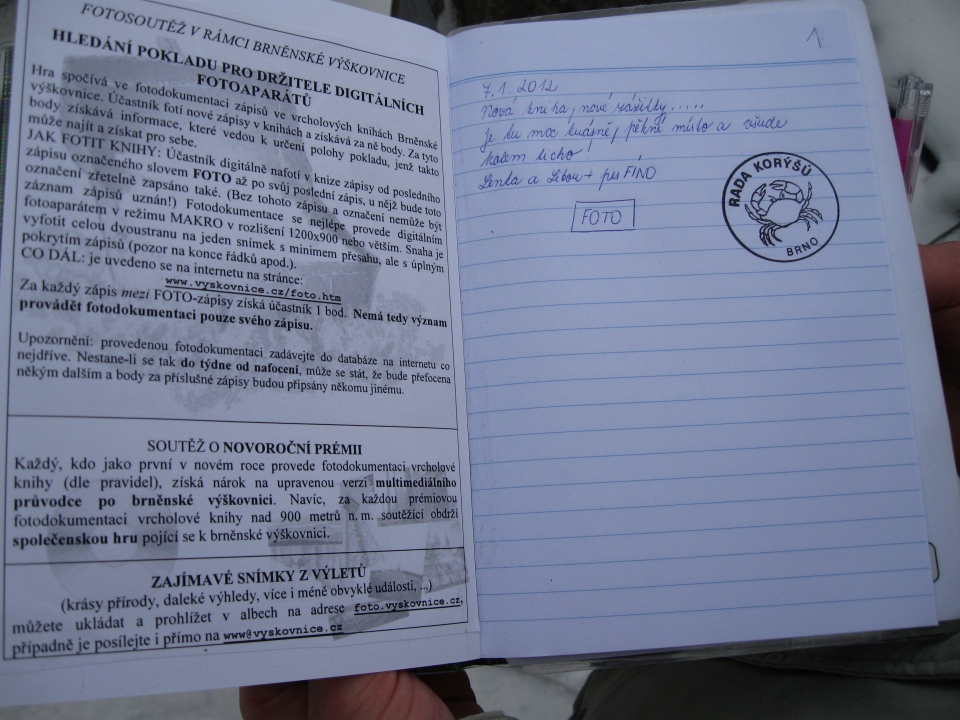 FOTOSOUTĚŽ V RÁMCI BRNĚNSKÉ VÝŠKOVNICE
HLEDÁNÍ POKLADU PRO DRŽITELE DIGITÁLNÍCH
FOTOAPARÁTŮ
Hra spočívá ve fotodokumentaci zápisů ve vrcholových knihách Brněnské
výškovnice. Účastník fotí nové zápisy v knihách a získává za ně body. Za tyto
body získává informace, které vedou k určení polohy pokladu, jenž takto
může najít a získat pro sebe.
JAK FOTIT KNIHY: Účastník digitálně nafotí v knize zápisy od posledního
zápisu označeného slovem FOTO až po svůj poslední zápis, u nějž bude toto
označení zřetelně zapsáno také. (Bez tohoto zápisu a označení nemůže být
záznam zápisů uznán!) Fotodokumentace se nejlépe provede digitálním
fotoaparátem v režimu MAKRO v rozlišení 1200x900 nebo větším. Snaha je
vyfotit celou dvoustranu na jeden snímek s minimem přesahu, ale s úplným
pokrytím zápisů (pozor na konce řádků apod.).
CO DÁL: je uvedeno se na internetu na stránce:
www.vyskovnice.cz/foto.htm
Za každý zápis mezi FOTO-zápisy získá účastník 1 bod. Nemá tedy význam
provádět fotodokumentaci pouze svého zápisu.
Upozornění: provedenou fotodokumentaci zadávejte do databáze na internetu co
nejdříve. Nestane-li se tak do týdne od nafocení, může se stát, že bude přefocena
někým dalším a body za příslušné zápisy budou připsány někomu jinému.
SOUTĚŽ O NOVOROČNÍ PRÉMII
Každý, kdo jako první v novém roce provede fotodokumentaci vrcholové
knihy (dle pravidel), získá nárok na upravenou verzi multimediálního
průvodce po brněnské výškovnici. Navíc, za každou prémiovou
fotodokumentaci vrcholové knihy nad 900 metrů n. m. soutěžící obdrží
společenskou hru pojící se k brněnské výškovnici.
ZAJÍMAVÉ SNÍMKY Z VÝLETŮ
(krásy přírody, daleké výhledy, více i méně obvyklé události, ...)
můžete ukládat a prohlížet v albech na adrese foto.vyskovnice.cz,
případně je posílejte i přímo na www@vyskovnice.cz
1
7.1.2012
Nová kniha, nové zážitky.....
Je tu moc krásně, pěkné místo a všude
kolem ticho!
Lenka a Libor + pes FÍNO
FOTO
RADA KORÝŠŮ
BRNO